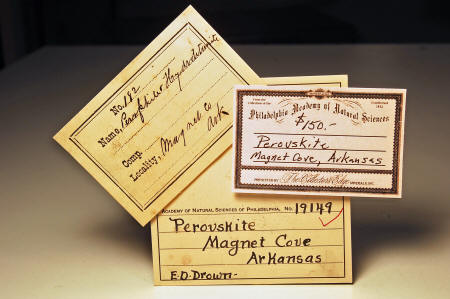 No. 192
Name, Hydrotitanite
Comp.
Locality, Magnet Co
Ark
From the Collection of the
Established 1812
Philadelphia Academy of Natural Sciences
$150.-
Perovskite
Magnet Cove, Arkansas
PRESENTED BY The Collector's Edge MINERALS, INC.
ACADEMY OF NATURAL SCIENCES OF PHILADELPHIA, No. 19149
Perovskite
Magnet Cove
Arkansas
E.D. Drown-